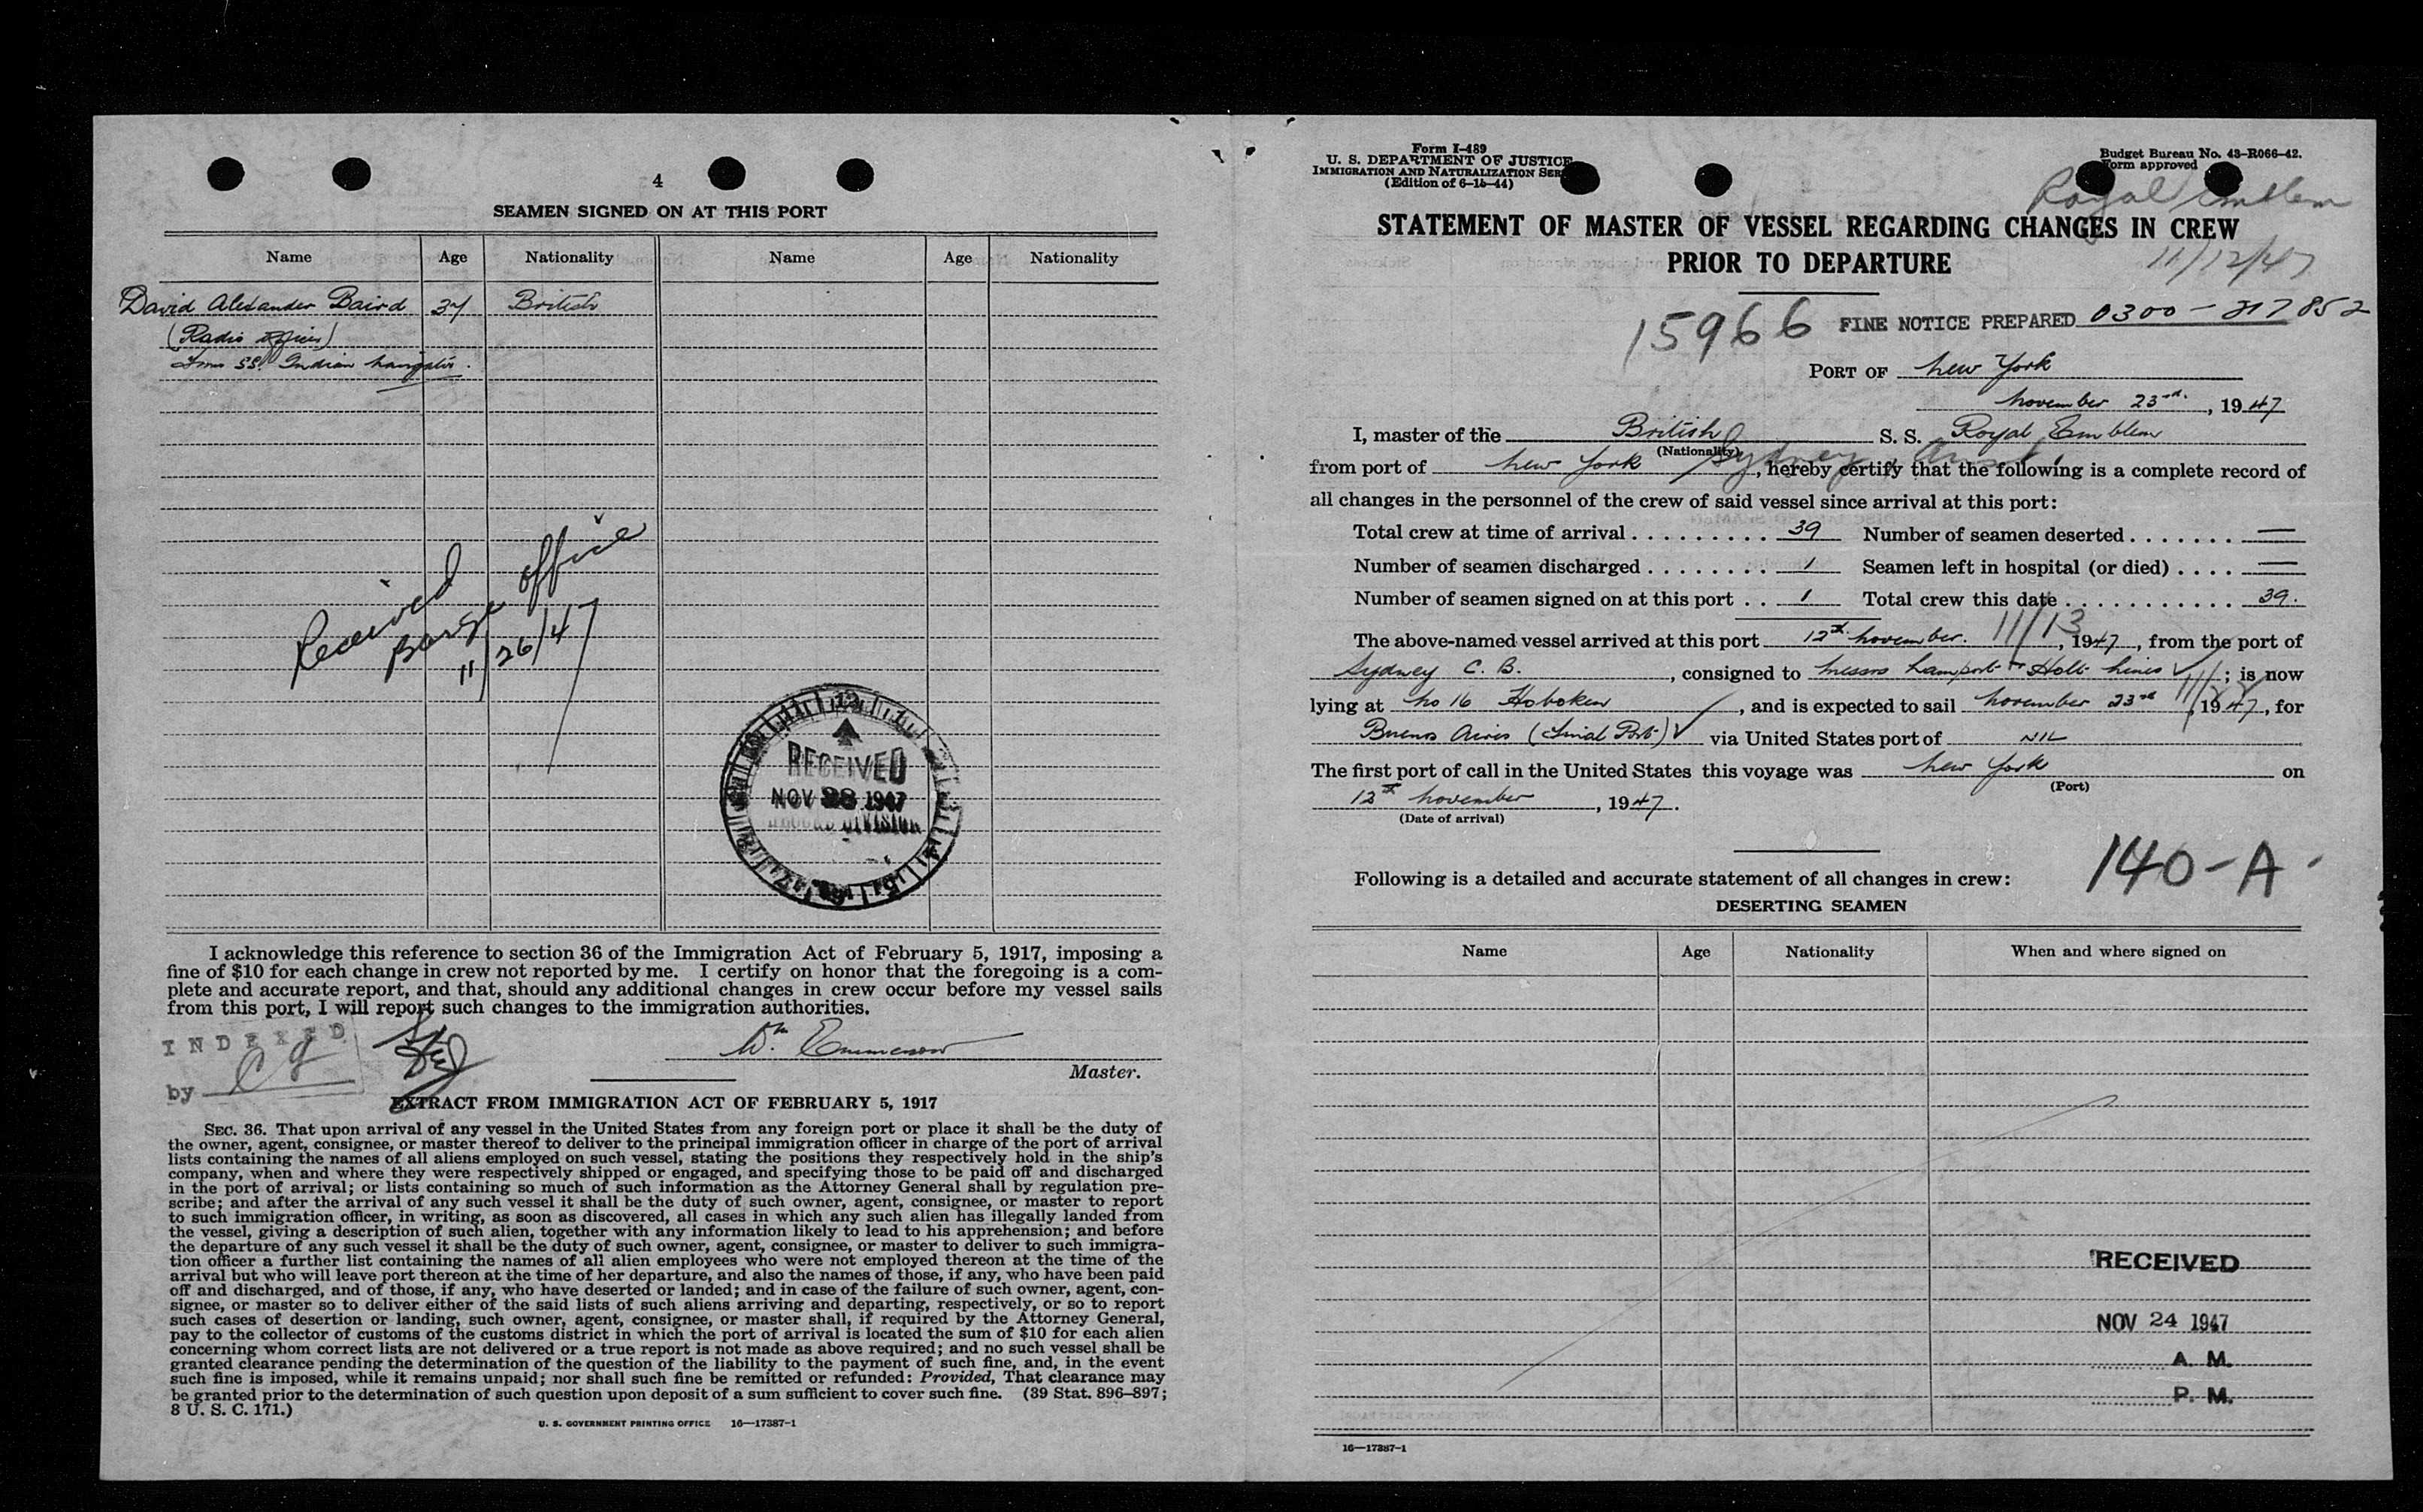 4
SEAMEN SIGNED ON AT THIS PORT
Name Age Nationality Name Age Nationality
David Alexander Baird 37 British
(Radio Officer)
From SS. Indian Navigator.
Received
Barge Office
11/26/47
RECEIVED
NOV 28 1947
RECORD DIVISION
I acknowledge this reference to section 36 of the Immigration Act of February 5, 1917, imposing a
fine of $10 for each change in crew not reported by me. I certify on honor that the foregoing is a com-
plete and accurate report, and that, should any additional changes in crew occur before my vessel sails
from this port, I will report such changes to the immigration authorities.
INDEXED
by
Master.
EXTRACT FROM IMMIGRATION ACT OF FEBRUARY 5, 1917
SEC. 36. That upon arrival of any vessel in the United States from any foreign port or place it shall be the duty of
the owner, agent, consignee, or master thereof to deliver to the principal immigration officer in charge of the port of arrival
lists containing the names of all aliens employed on such vessel, stating the positions they respectively hold in the ship's
company, when and where they were respectively shipped or engaged, and specifying those to be paid off and discharged
in the port of arrival; or lists containing so much of such information as the Attorney General shall by regulation pre-
scribe; and after the arrival of any such vessel it shall be the duty of such owner, agent, consignee, or master to report
to such immigration officer, in writing, as soon as discovered, all cases in which any such alien has illegally landed from
the vessel, giving a description of such alien, together with any information likely to lead to his apprehension; and before
the departure of any such vessel it shall be the duty of such owner, agent, consignee, or master to deliver to such immigra-
tion officer a further list containing the names of all alien employees who were not employed thereon at the time of the
arrival but who will leave port thereon at the time of her departure, and also the names of those, if any, who have been paid
off and discharged, and of those, if any, who have deserted or landed; and in case of the failure of such owner, agent, con-
signee, or master so to deliver either of the said lists of such aliens arriving and departing, respectively, or so to report
such cases of desertion or landing, such owner, agent, consignee, or master shall, if required by the Attorney General,
pay to the collector of customs of the customs district in which the port of arrival is located the sum of $10 for each alien
concerning whom correct lists are not delivered or a true report is not made as above required; and no such vessel shall be
granted clearance pending the determination of the question of the liability to the payment of such fine, and, in the event
such fine is imposed, while it remains unpaid; nor shall such fine be remitted or refunded: Provided, That clearance may
be granted prior to the determination of such question upon deposit of a sum sufficient to cover such fine. (39 Stat. 896–897;
8 U. S. C. 171.)
U. S. GOVERNMENT PRINTING OFFICE 16—17387-1
Form I-489
U. S. DEPARTMENT OF JUSTICE
IMMIGRATION AND NATURALIZATION SER
(Edition of 6-15-44)
Budget Bureau No. 43-R066-42.
Form approved
Royal Emblem
STATEMENT OF MASTER OF VESSEL REGARDING CHANGES IN CREW
PRIOR TO DEPARTURE
11/12/47
15966 FINE NOTICE PREPARED 0300 - 317852
PORT OF New York
November 23rd. , 1947
I, master of the British S. S. Royal Emblem
(Nationality)
from port of New York Sydney , hereby certify that the following is a complete record of
all changes in the personnel of the crew of said vessel since arrival at this port:
Total crew at time of arrival . . . . . . . . . 39 Number of seamen deserted . . . . . . . —
Number of seamen discharged . . . . . . . . 1 Seamen left in hospital (or died) . . . . —
Number of seamen signed on at this port . . 1 Total crew this date . . . . . . . . . . . . 39.
The above-named vessel arrived at this port 12th November. 11/13 , 1947 , from the port of
Sydney C. B. , consigned to Messrs Lamport & Holt Lines ; is now
lying at No 16 Hoboken , and is expected to sail November 23rd , 1947 , for
Buenos Aires (Final Port) via United States port of NIL
The first port of call in the United States this voyage was New York on
(Port)
12th November , 1947 .
(Date of arrival)
140-A
Following is a detailed and accurate statement of all changes in crew:
DESERTING SEAMEN
Name Age Nationality When and where signed on
RECEIVED
NOV 24 1947
A. M.
P. M.
16—17387-1